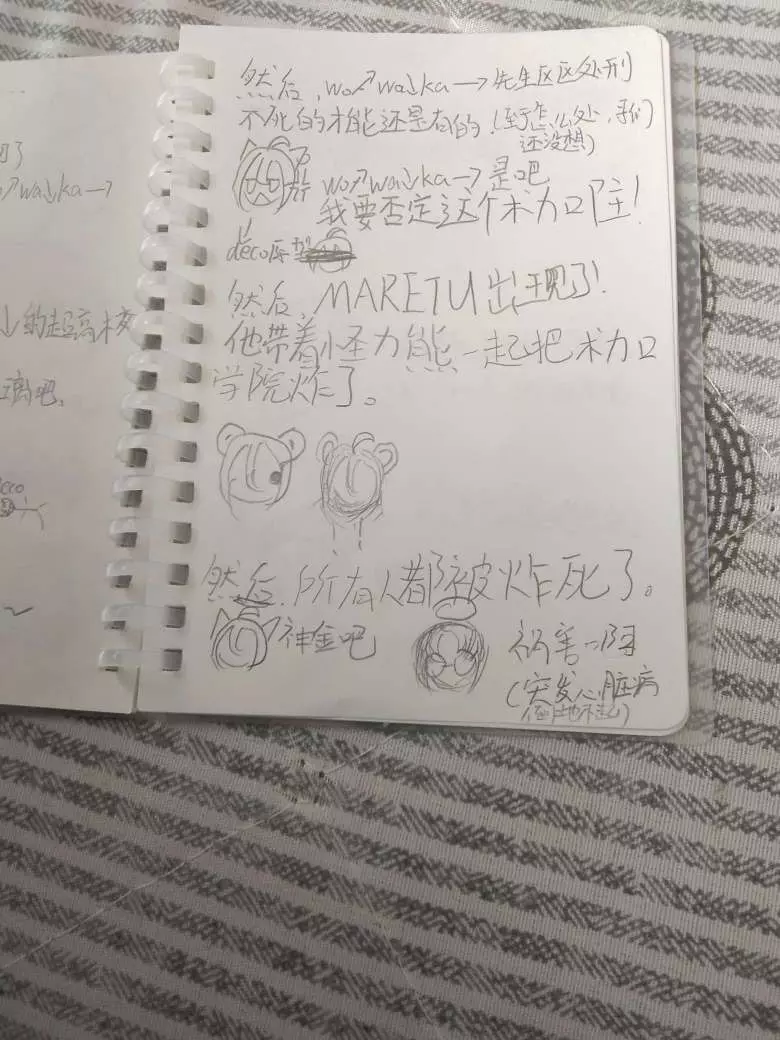 了
wa↓ka→
↓的超高校
离吧。
然后,wo↗wa↓ka→先生区区处刑
不死的才能还是有的(至于怎么处,我们
还没想)
wo↗wa↓ka→是吧
我要否定这个术力口!
deco原型
然后,MARETU出现了!
他带着怪力熊一起把术力口
学院炸了。
然后,所有人都被炸死了。
神金吧
祸害一阵
(突发心脏病
倒地不起)